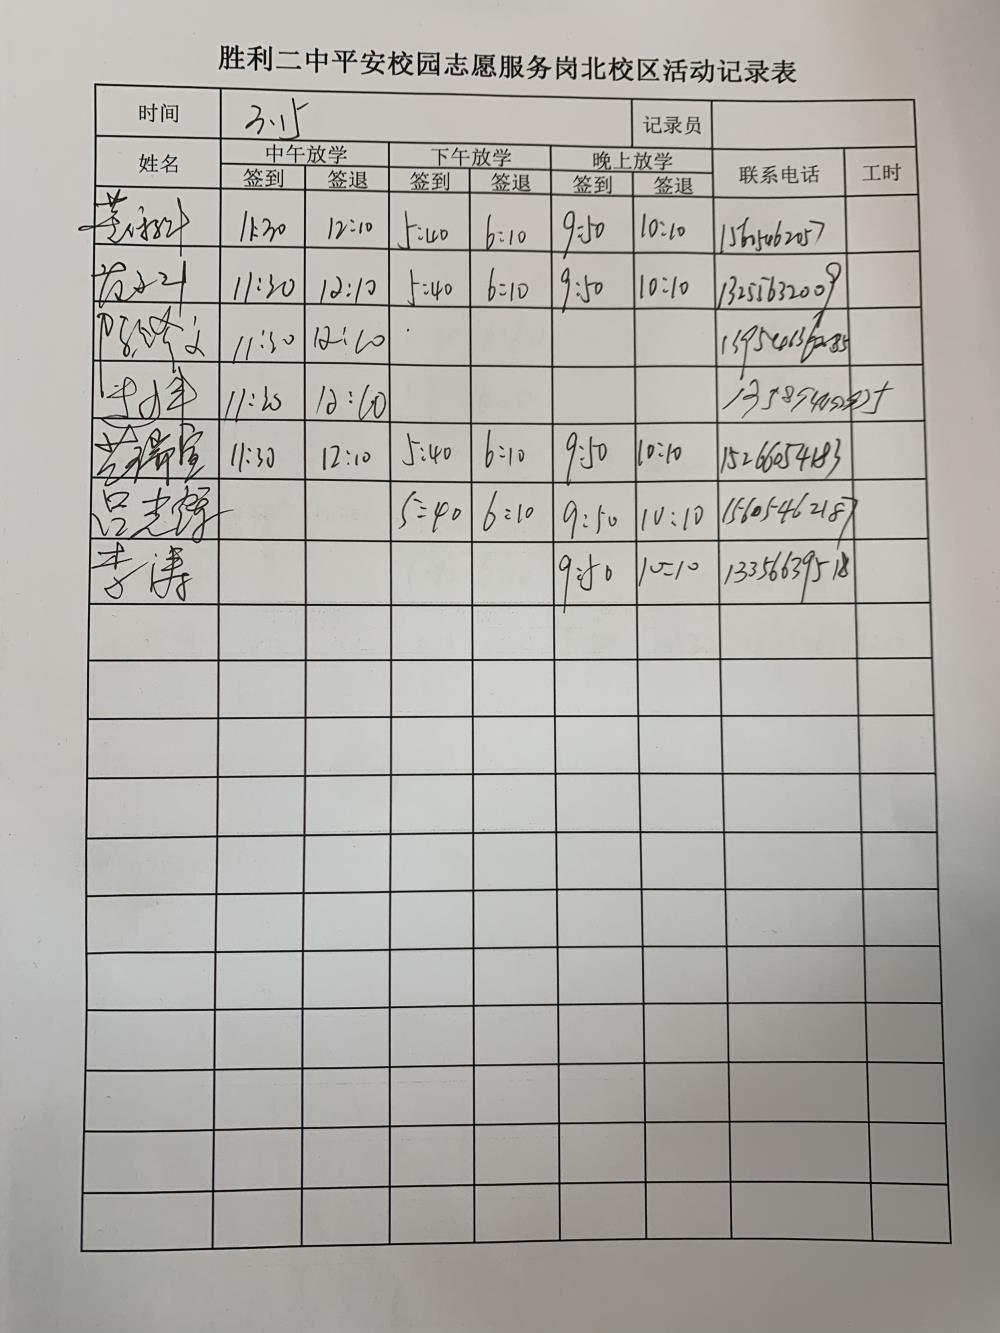 胜利二中平安校园志愿服务岗北校区活动记录表
时间 3.15 记录员
姓名 中午放学 下午放学 晚上放学 联系电话 工时
签到 签退 签到 签退 签到 签退
11:30 12:10 5:40 6:10 9:50 10:10 15605462057
11:30 12:10 5:40 6:10 9:50 10:10 13255632009
11:30 12:10
11:30 12:10
瑞宣 11:30 12:10 5:40 6:10 9:50 10:10 15266054183
吕志 5:40 6:10 9:50 10:10 15605462187
李涛 9:50 10:10 13356639518